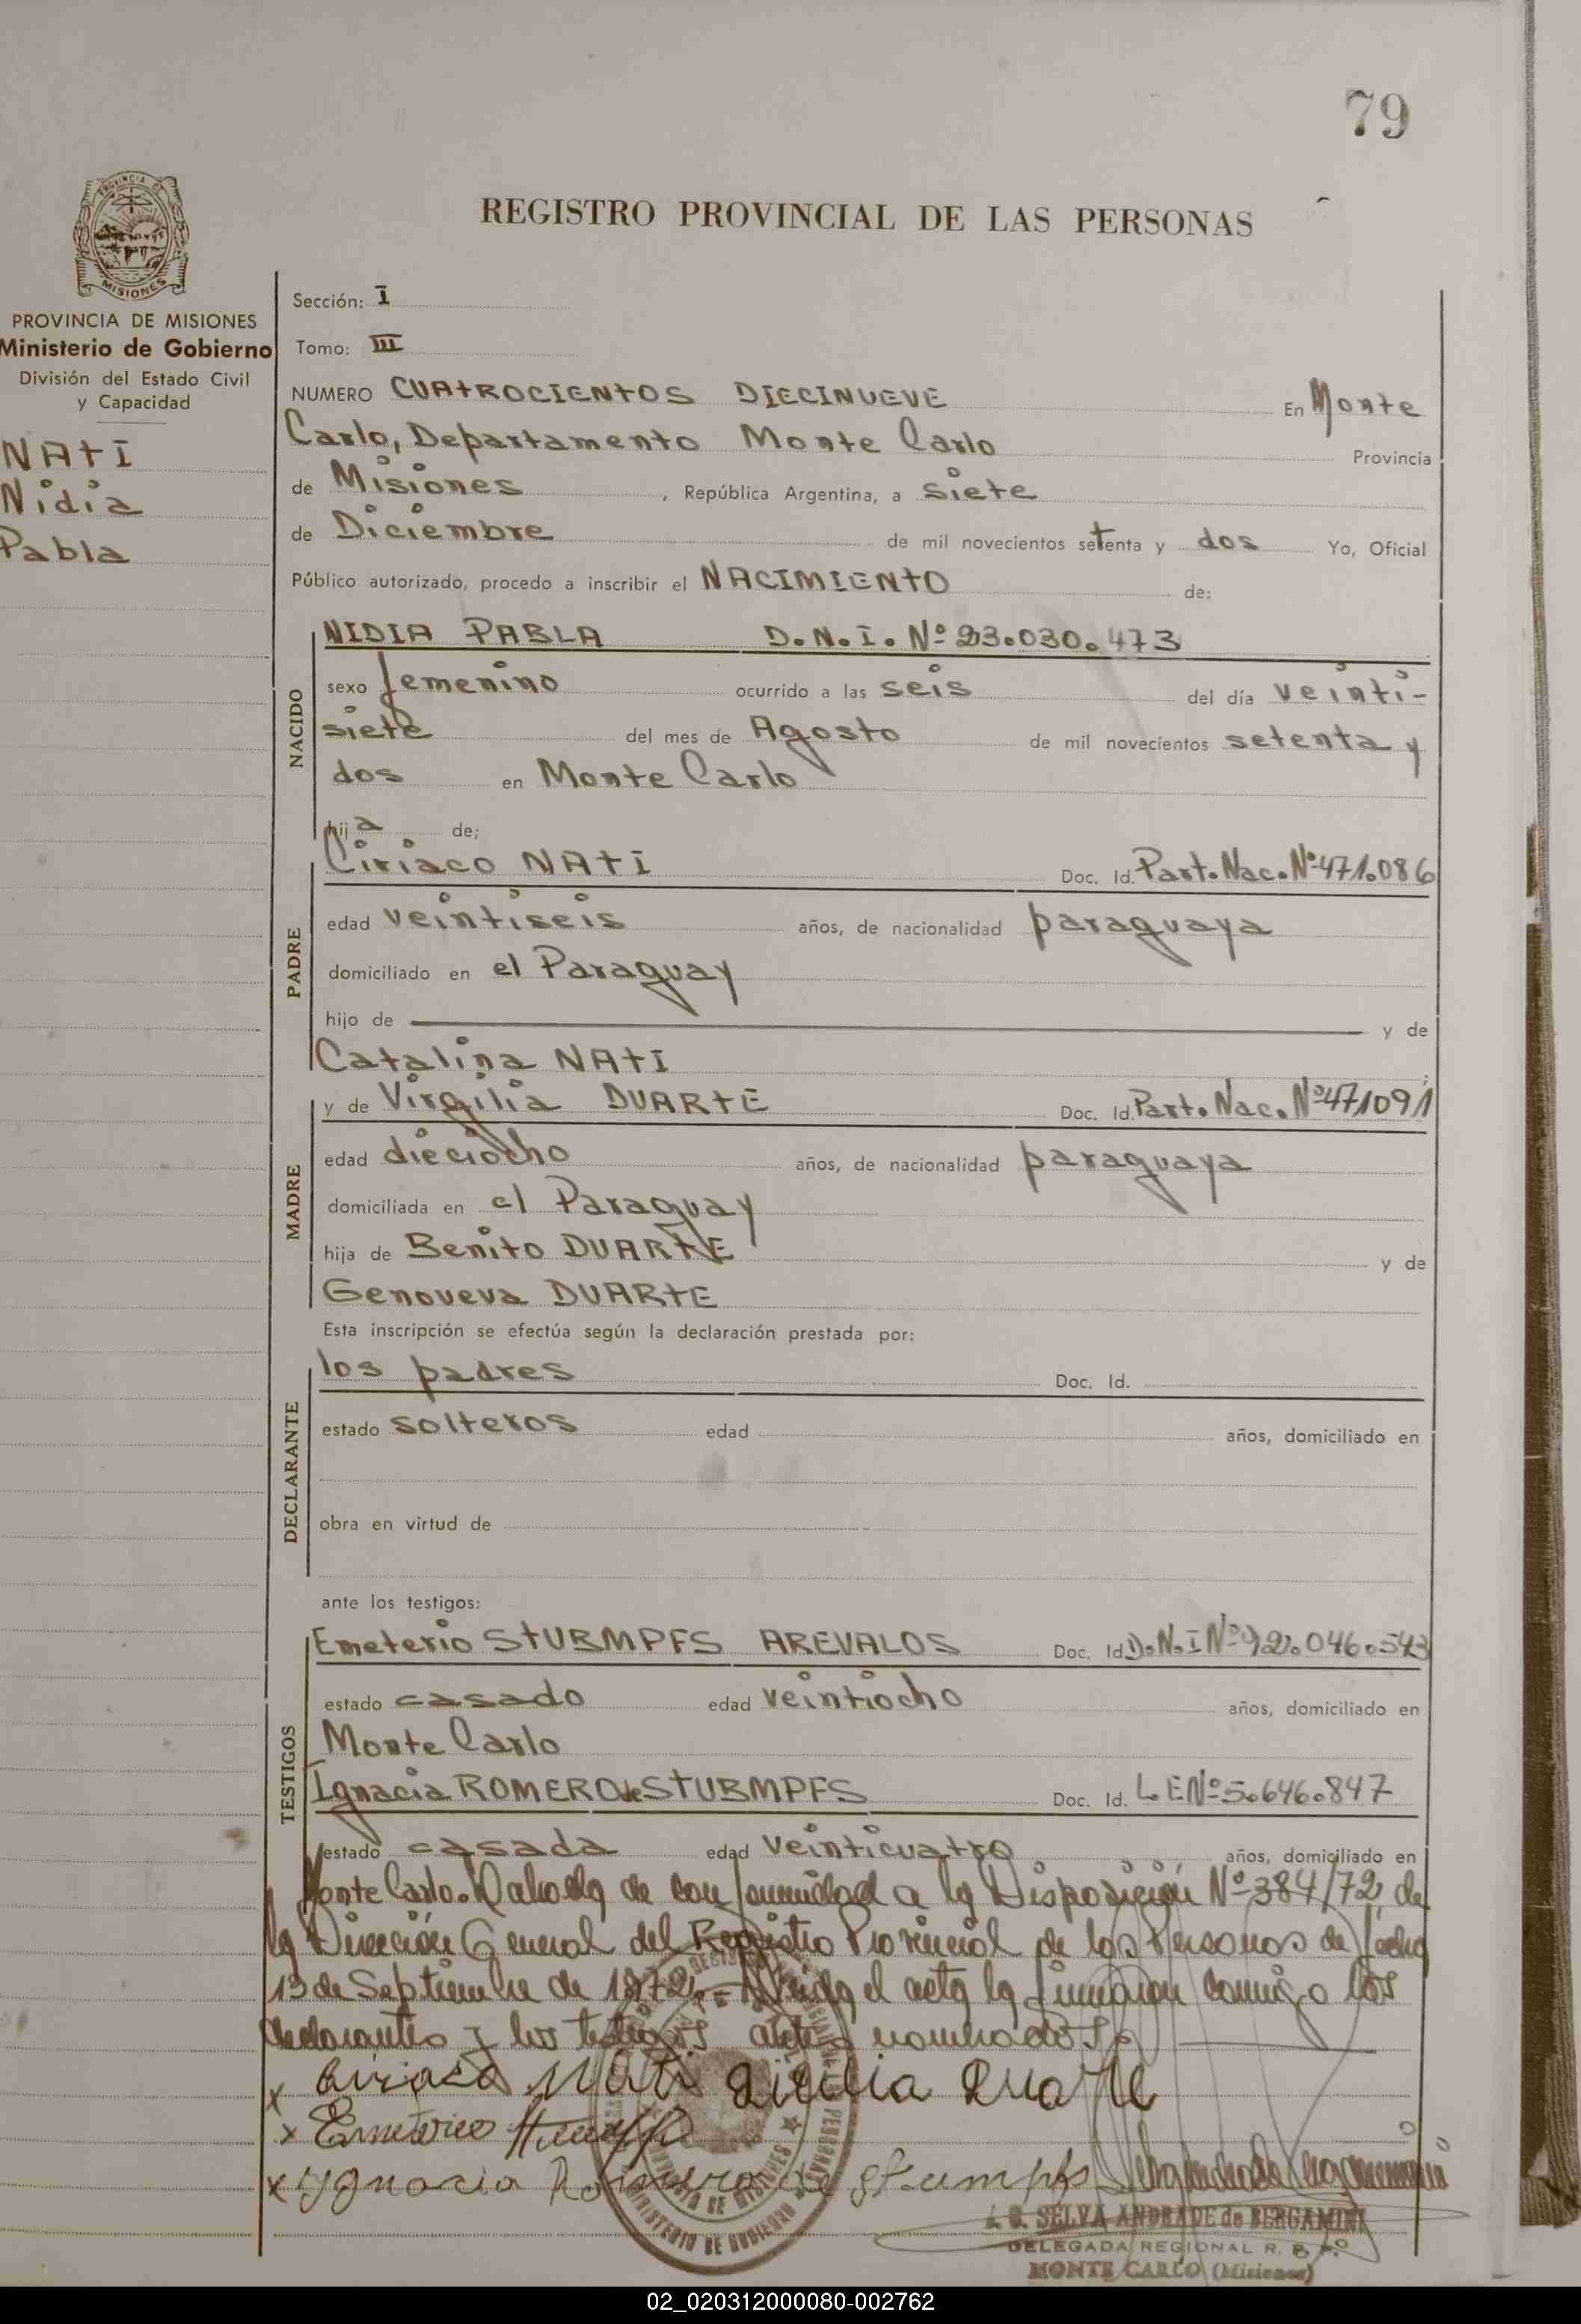 79
REGISTRO PROVINCIAL DE LAS PERSONAS
PROVINCIA DE MISIONES
Ministerio de Gobierno
División del Estado Civil
y Capacidad
NATI
Nidia
Pabla
Sección: I
Tomo: III
NUMERO CUATROCIENTOS DIECINUEVE En Monte
Carlo, Departamento Monte Carlo Provincia
de Misiones, República Argentina, a siete
de Diciembre de mil novecientos setenta y dos Yo, Oficial
Público autorizado, procedo a inscribir el NACIMIENTO de:
NACIDO
NIDIA PABLA D.N.I. Nº 23.030.473
sexo femenino ocurrido a las seis del día veinti-
siete del mes de Agosto de mil novecientos setenta y
dos en Monte Carlo
hija de;
PADRE
Ciriaco NATI Doc. Id. Part. Nac. Nº 471.086
edad veintiseis años, de nacionalidad paraguaya
domiciliado en el Paraguay
hijo de y de
Catalina NATI
MADRE
y de Virgilia DUARTE Doc. Id. Part. Nac. Nº 471091
edad dieciocho años, de nacionalidad paraguaya
domiciliada en el Paraguay
hija de Benito DUARTE y de
Genoveva DUARTE
Esta inscripción se efectúa según la declaración prestada por:
DECLARANTE
los padres Doc. Id.
estado solteros edad años, domiciliado en
obra en virtud de
ante los testigos:
TESTIGOS
Emeterio STUBMPFS AREVALOS Doc. Id. D.N.I Nº 92.046.543
estado casado edad veintiocho años, domiciliado en
Monte Carlo
Ignacia ROMERO de STUBMPFS Doc. Id. L.E Nº 5.646.847
estado casada edad veinticuatro años, domiciliado en
Monte Carlo. de conformidad a la Disposición Nº 384/72, de
la Dirección General del Registro Provincial de las Personas de fecha
13 de Septiembre de 1972.= Leída el acta la firmaron conmigo los
declarantes y los testigos antes nombrados
x Ciriaco Nati Duarte
x Emeterio
x Ygnacia Romero de Stumpfs
SELVA ANDRADE de BERGAMINI
DELEGADA REGIONAL R. P. P.
MONTE CARLO (Misiones)
02_020312000080-002762